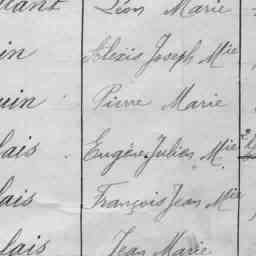 Léon Marie
in Alexis Joseph Mie
uin Pierre Marie
lais Eugène Julien Mie
lais François Jean Mie
lais Jean Marie